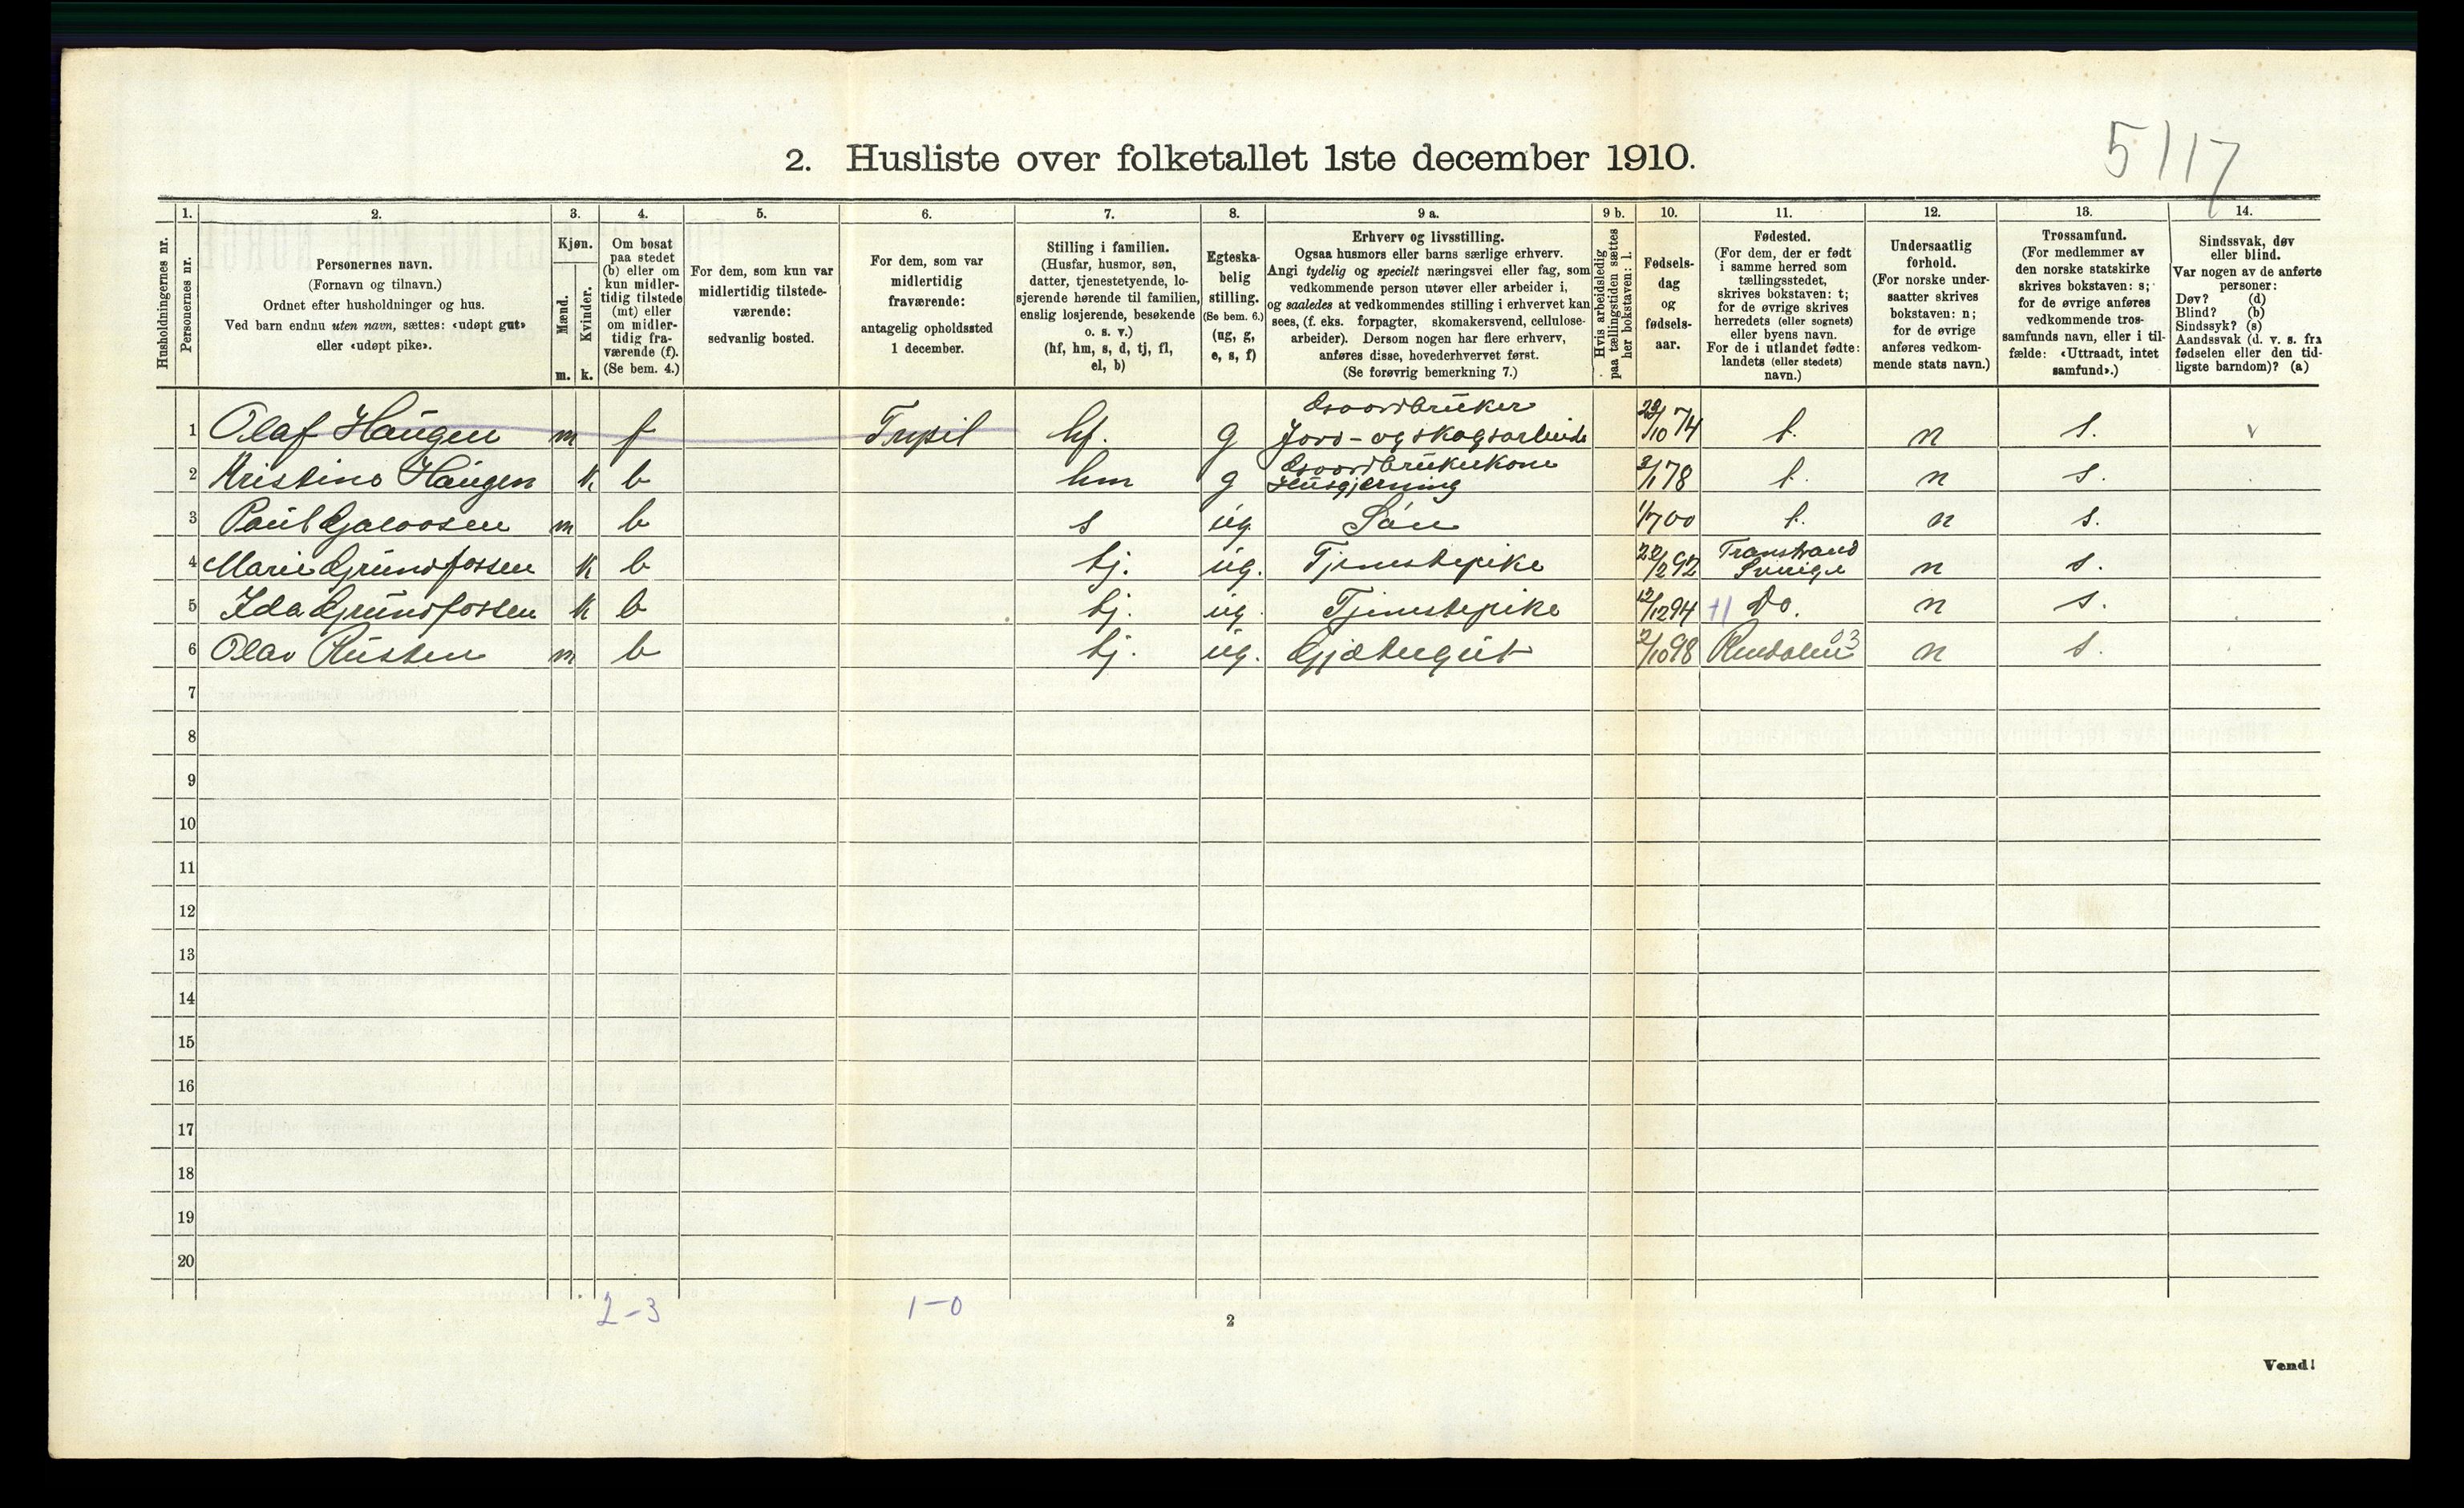 5/17
2. Husliste over folketallet 1ste december 1910.
1. 2. 3. 4. 5. 6. 7. 8. 9 a. 9 b. 10. 11. 12. 13. 14.
Husholdningernes nr.
Personernes nr.
Personernes navn.
(Fornavn og tilnavn.)
Ordnet efter husholdninger og hus.
Ved barn endnu uten navn, sættes: «udøpt gut»
eller «udøpt pike».
Kjøn.
Mænd.
Kvinder.
m. k.
Om bosat
paa stedet
(b) eller om
kun midler-
tidig tilstede
(mt) eller
om midler-
tidig fra-
værende (f).
(Se bem. 4.)
For dem, som kun var
midlertidig tilstede-
værende:
sedvanlig bosted.
For dem, som var
midlertidig
fraværende:
antagelig opholdssted
1 december.
Stilling i familien.
(Husfar, husmor, søn,
datter, tjenestetyende, lo-
sjerende hørende til familien,
enslig losjerende, besøkende
o. s. v.)
(hf, hm, s, d, tj, fl,
el, b)
Egteska-
belig
stilling.
(Se bem. 6.)
(ug, g,
e, s, f)
Erhverv og livsstilling.
Ogsaa husmors eller barns særlige erhverv.
Angi tydelig og specielt næringsvei eller fag, som
vedkommende person utøver eller arbeider i,
og saaledes at vedkommendes stilling i erhvervet kan
sees, (f. eks. forpagter, skomakersvend, cellulose-
arbeider). Dersom nogen har flere erhverv,
anføres disse, hovederhvervet først.
(Se forøvrig bemerkning 7.)
Hvis arbeidsledig
paa tællingstiden sættes
her bokstaven: l.
Fødsels-
dag
og
fødsels-
aar.
Fødested.
(For dem, der er født
i samme herred som
tællingsstedet,
skrives bokstaven: t;
for de øvrige skrives
herredets (eller sognets)
eller byens navn.
For de i utlandet fødte:
landets (eller stedets)
navn.)
Undersaatlig
forhold.
(For norske under-
saatter skrives
bokstaven: n;
for de øvrige
anføres vedkom-
mende stats navn.)
Trossamfund.
(For medlemmer av
den norske statskirke
skrives bokstaven: s;
for de øvrige anføres
vedkommende tros-
samfunds navn, eller i til-
fælde: «Uttraadt, intet
samfund».)
Sindssvak, døv
eller blind.
Var nogen av de anførte
personer:
Døv? (d)
Blind? (b)
Sindssyk? (s)
Aandssvak (d. v. s. fra
fødselen eller den tid-
ligste barndom)? (a)
Gaardbruker
1 Olaf Haugen m f Trysil hf. g Jord- og skogsarbeide 10 74 t. n s. v
Gaardbrukerkone
2 Kristine Haugen k b hm g Husgjerning 3/1 78 t. n s.
3 Paul m b s ug. Søn 1/7 00 t. n s.
4 Marie Grundfossen k b tj. ug. Tjenestepike 22/2 92 Transtrand Sverige n s.
5 Ida Grundfossen k b tj. ug. Tjenestepike 12/12 94 Do. n s.
6 Olav Rusten m b tj. ug. Gjætergut 2/10 98 Rendalen 03 n s.
7
8
9
10
11
12
13
14
15
16
17
18
19
20
2-3 1-0
2
Vend!